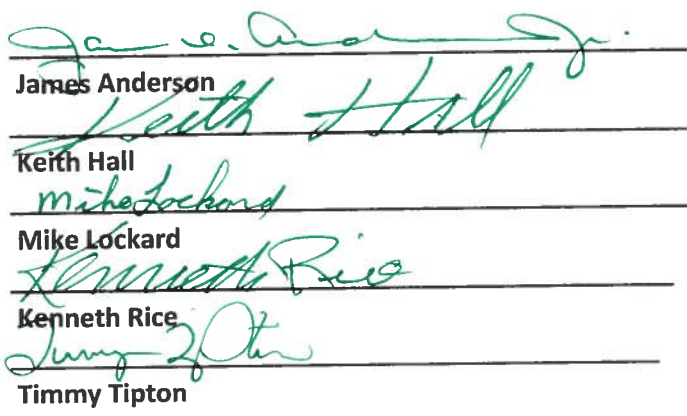 James D. Anderson Jr.
James Anderson
Keith Hall
Keith Hall
Mike Lockard
Mike Lockard
Kenneth Rice
Kenneth Rice
Timmy Tipton